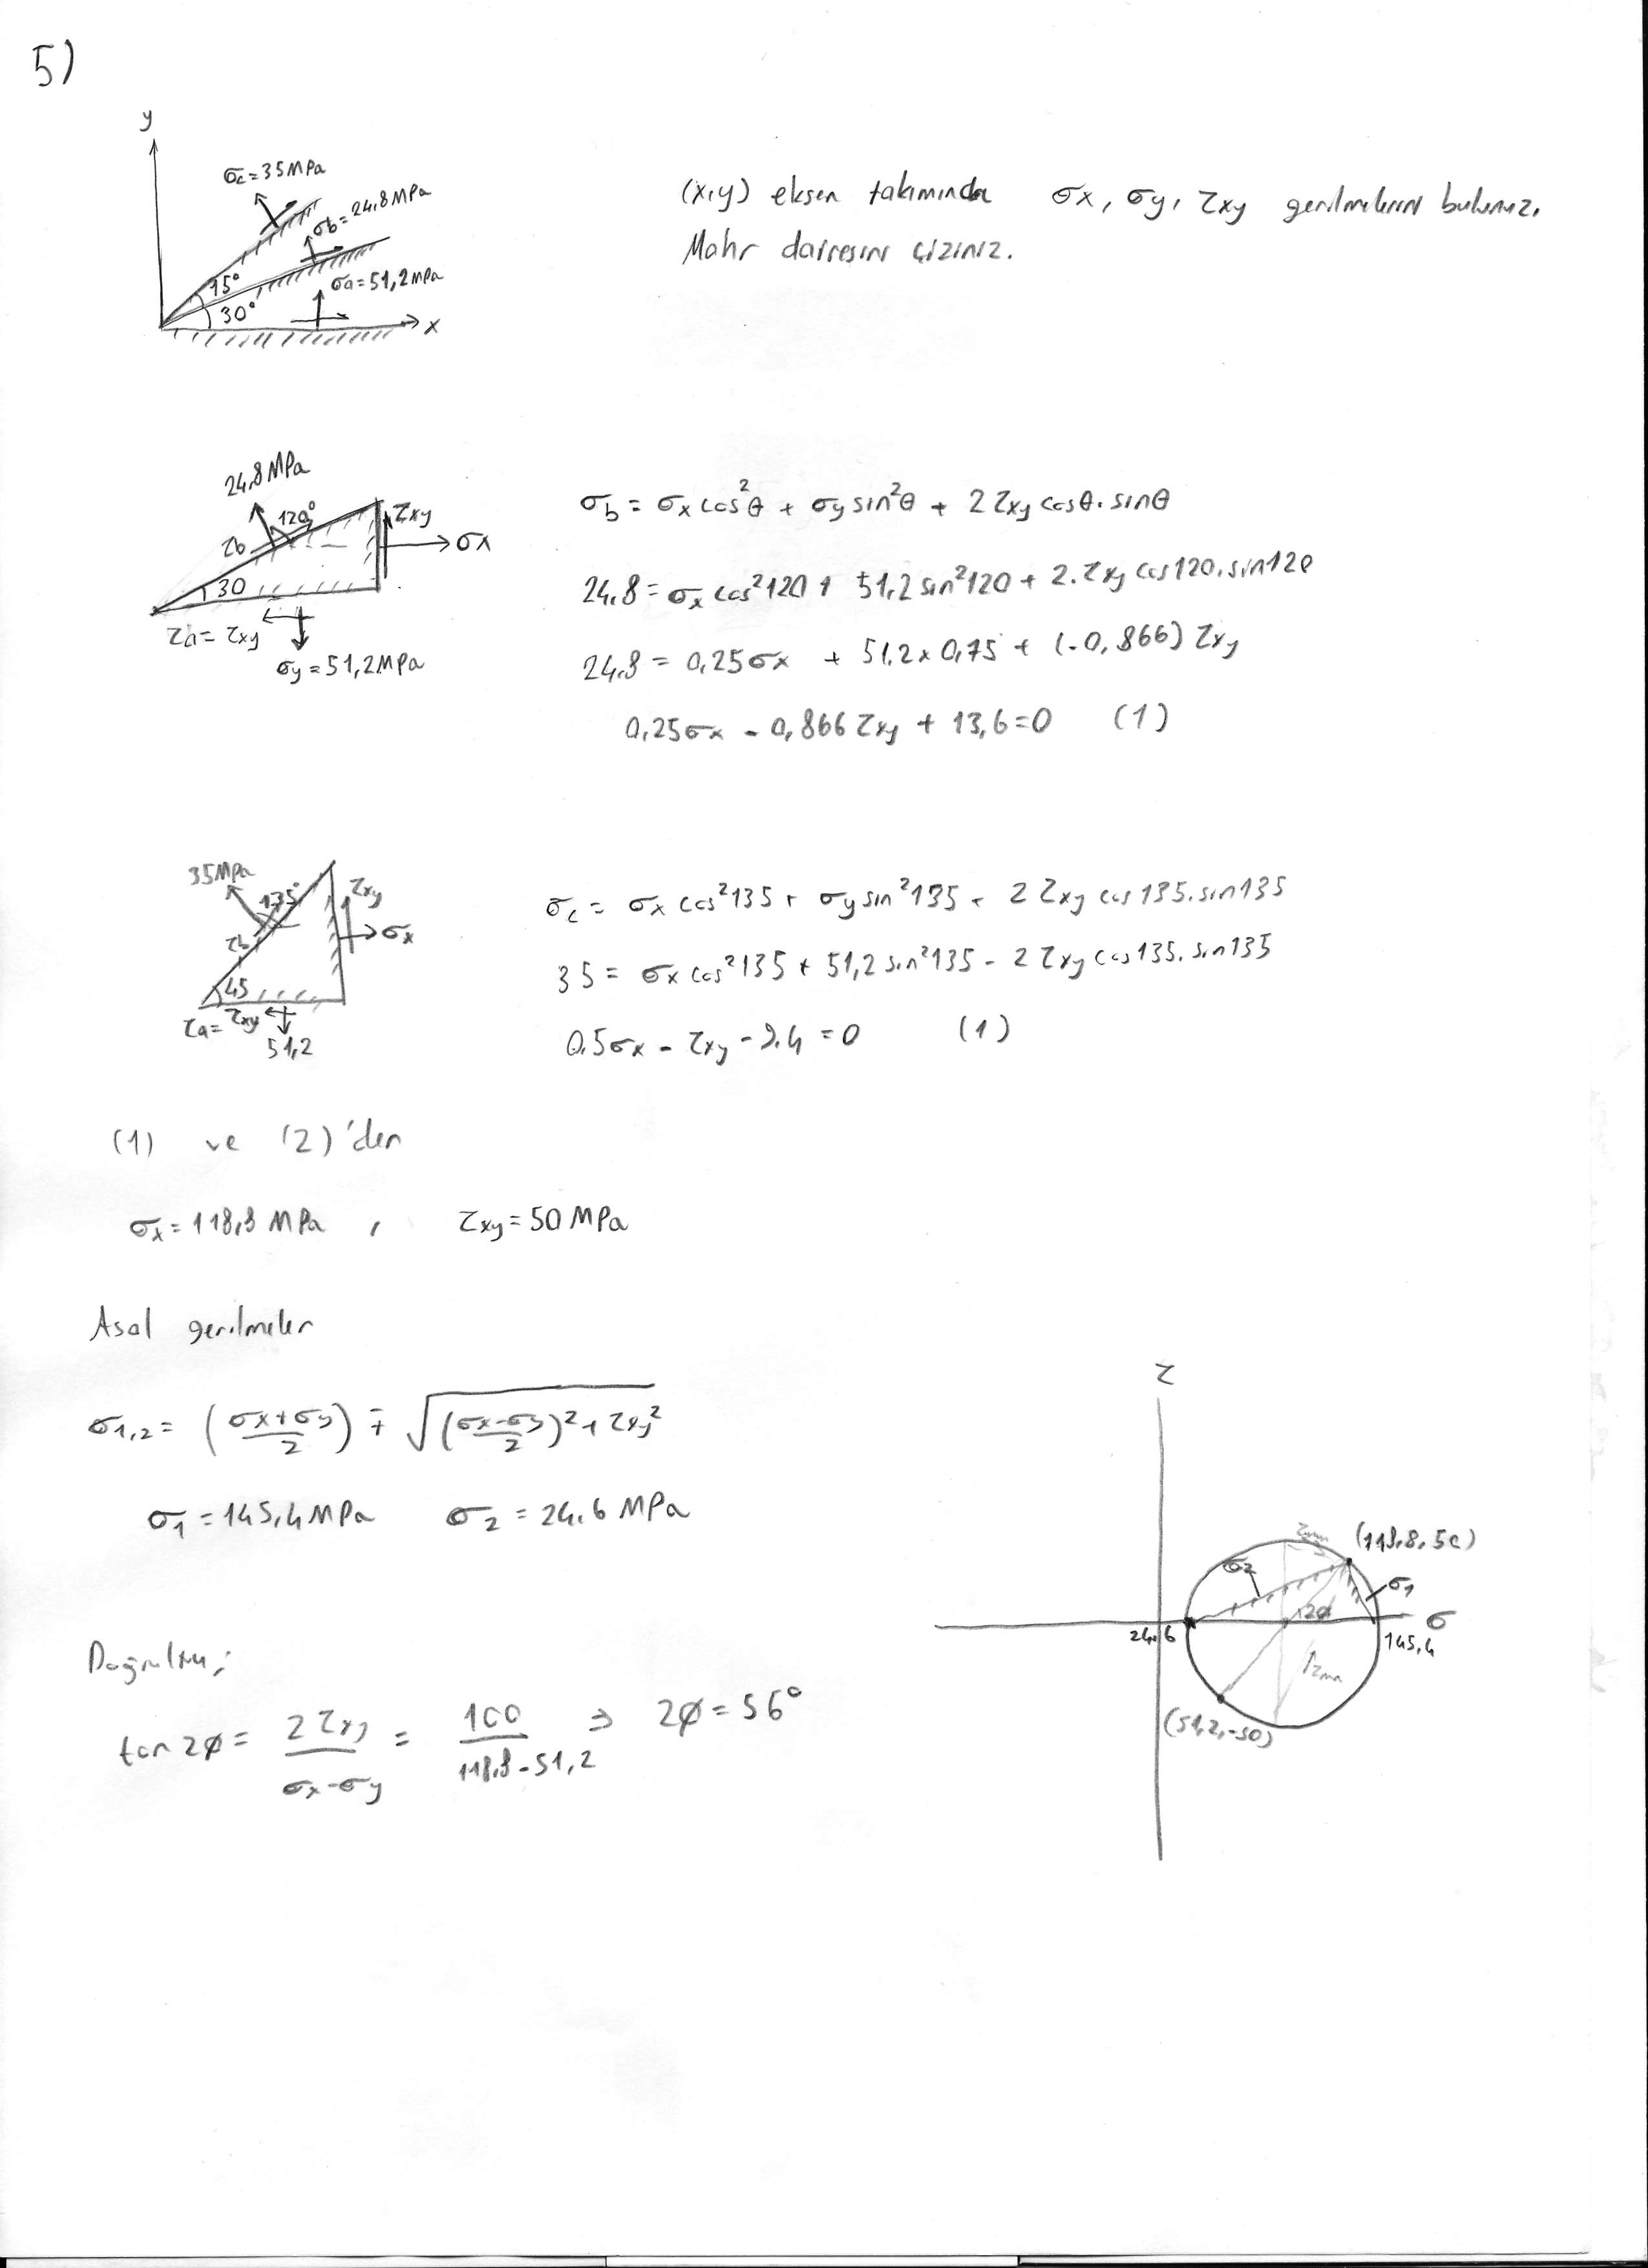 5)
y
σc=35MPa
σb=24,8MPa
15°
σa=51,2MPa
30°
x
(x,y) eksen takımında σx, σy, τxy gerilmelerini bulunuz.
Mohr dairesini çiziniz.
24,8MPa
120°
τxy
τb
σx
30
τa=τxy
σy=51,2MPa
σb = σx cos²θ + σy sin²θ + 2τxy cosθ.sinθ
24.8 = σx cos²120 + 51,2 sin²120 + 2.τxy cos120.sin120
24.8 = 0,25σx + 51.2x0,75 + (-0,866) τxy
0,25σx - 0,866τxy + 13,6=0 (1)
35MPa
135°
τxy
τb
σx
45
τa=τxy
51,2
σc = σx cos²135 + σy sin²135 - 2τxy cos135.sin135
35 = σx cos²135 + 51,2 sin²135 - 2τxy cos135.sin135
0.5σx - τxy - 9.4 = 0 (1)
(1) ve (2)'den
σx=118,8 MPa , τxy=50 MPa
Asal gerilmeler
σ1,2 = ((σx+σy)/2) ∓ √(((σx-σy)/2)²+τxy²)
σ1 = 145,4MPa σ2 = 24.6 MPa
τ
(118.8, 50)
σ2
σ1
2φ
σ
24,6
145,4
(51,2,-50)
Doğrultu;
tan2φ = 2τxy/(σx-σy) = 100/(118,8-51,2) ⇒ 2φ=56°